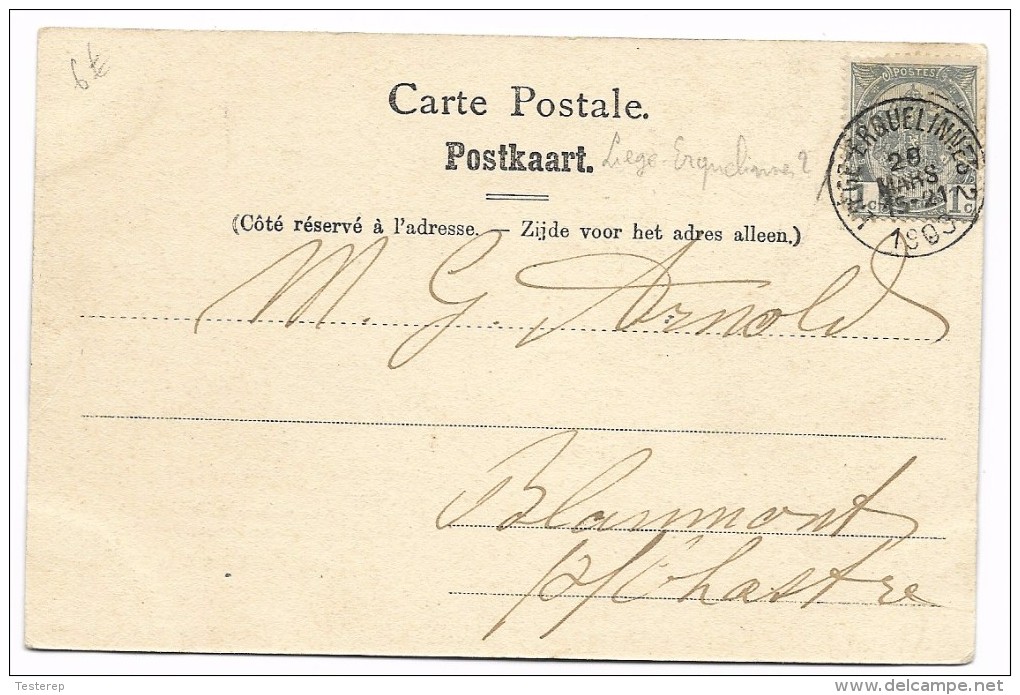 6€
Carte Postale.
Postkaart.
Liege-Erquelinnes 2
(Côté réservé à l'adresse. — Zijde voor het adres alleen.)
POSTES
1c 1c
LIEGE-ERQUELINNES 2
29
MARS
15-21
1903
M. G. Arnold
Blanmont
p/Chastre
Testerep
delcampe.net